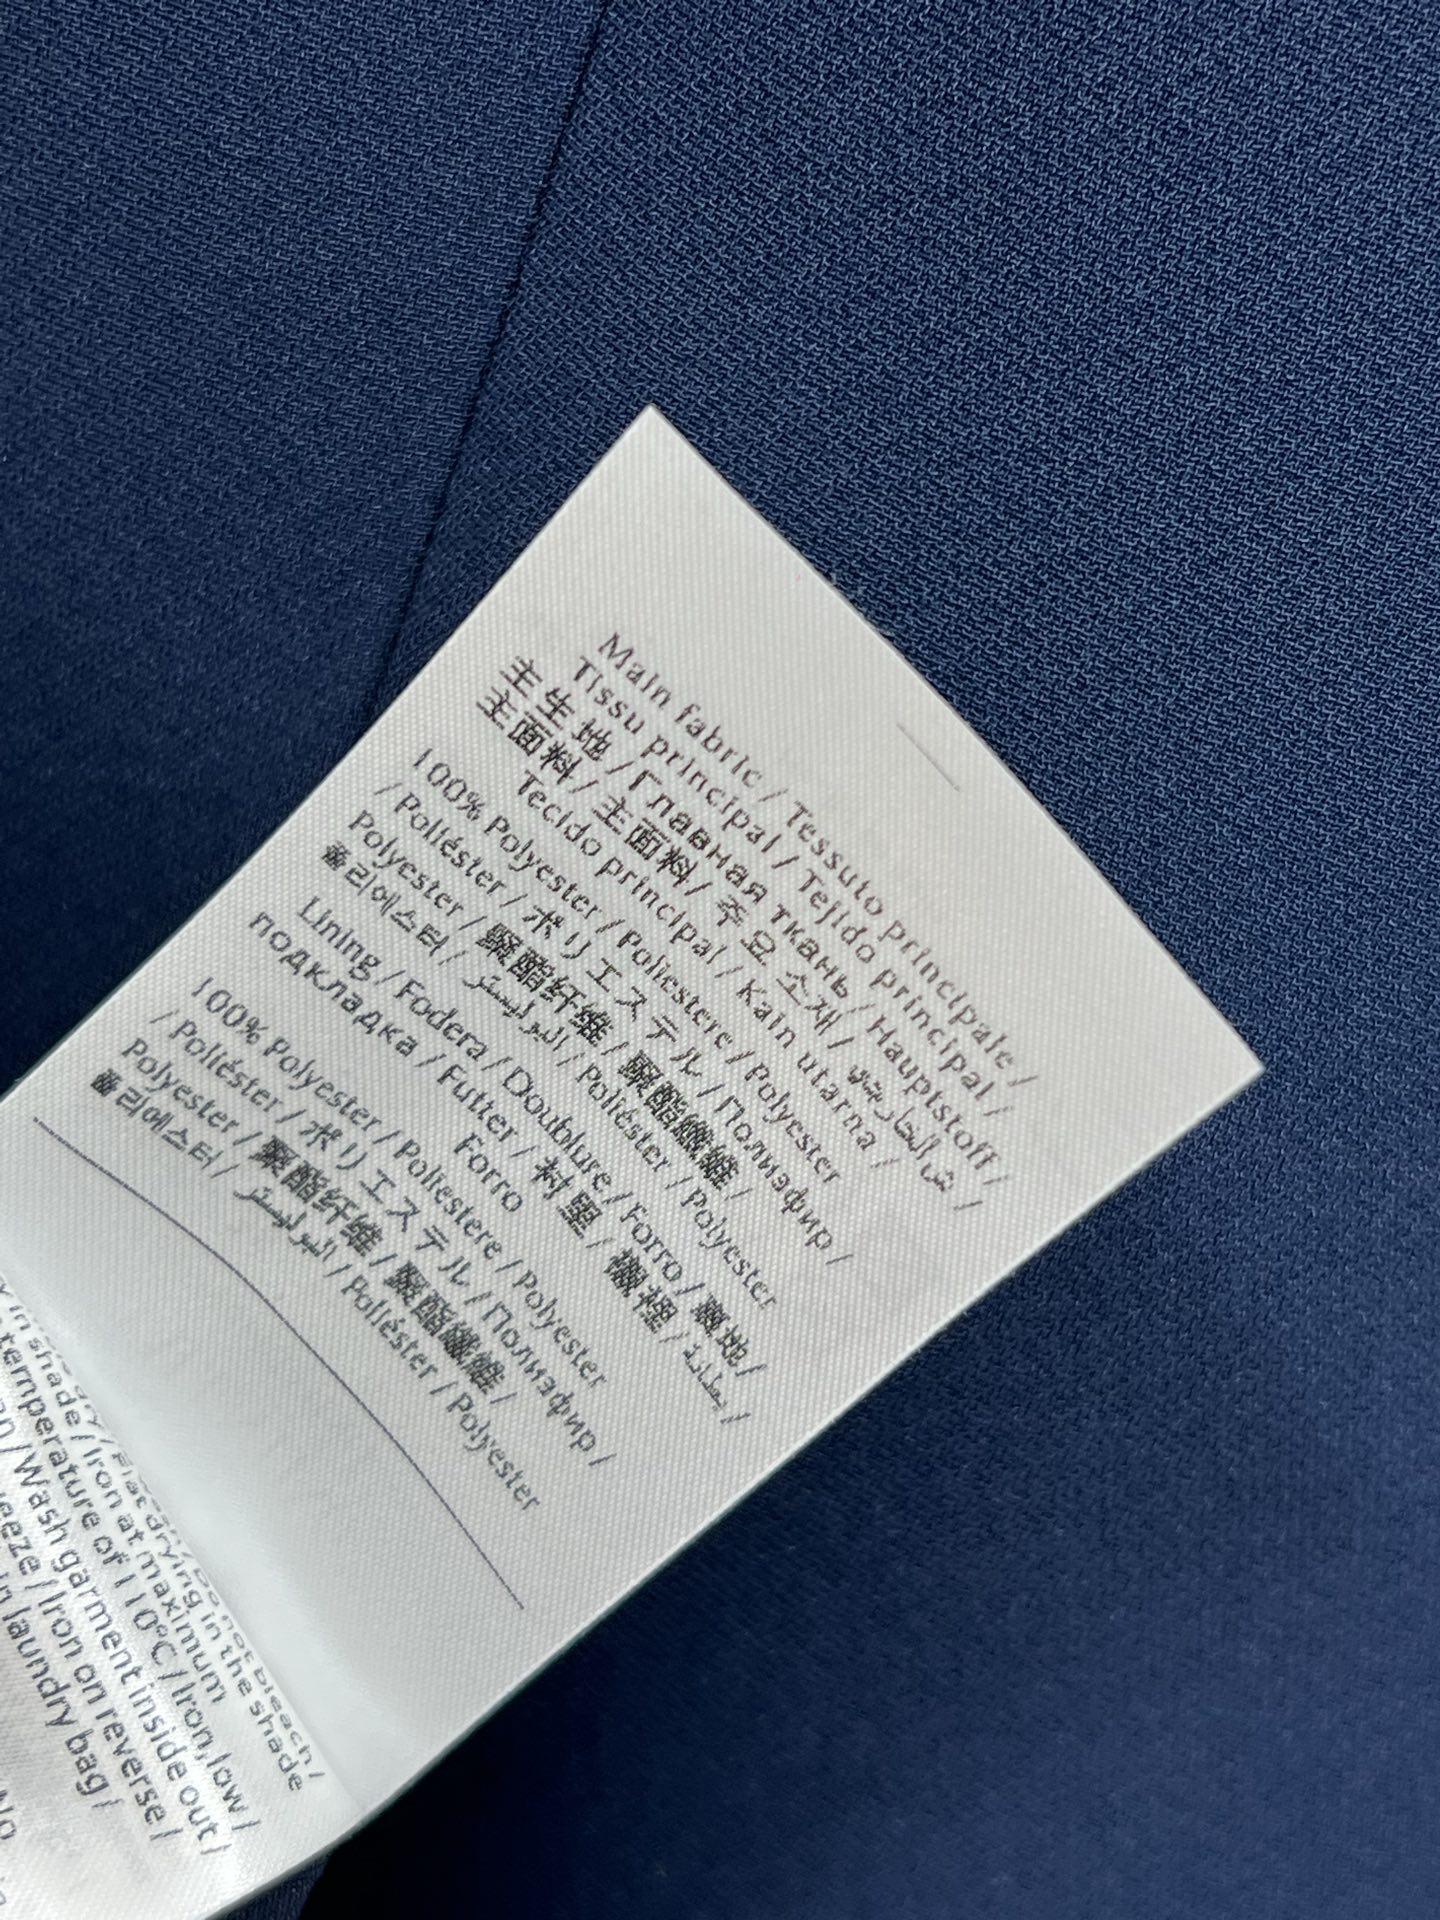 Main fabric / Tessuto principale /
Tissu principal / Tejido principal /
主生地 / Главная ткань / Hauptstoff /
主面料 / 主面料 / 주요 소재 /
Tecido principal / Kain utama /
100% Polyester / Poliestere / Polyester
/ Poliéster / ポリエステル / Полиэфир /
Polyester / 聚酯纤维 / 聚酯纖維 /
폴리에스터 / البوليستر / Poliéster / Polyester
Lining / Fodera / Doublure / Forro / 裏地 /
подкладка / Futter / 衬里 / 襯裡 / بطانة /
Forro
100% Polyester / Poliestere / Polyester
/ Poliéster / ポリエステル / Полиэфир /
Polyester / 聚酯纤维 / 聚酯纖維 /
폴리에스터 / البوليستر / Poliéster / Polyester
Flat drying in the shade
in shade / Iron at maximum
temperature of 110°C / Iron, low /
Wash garment inside out /
Iron on reverse /
in laundry bag /
No